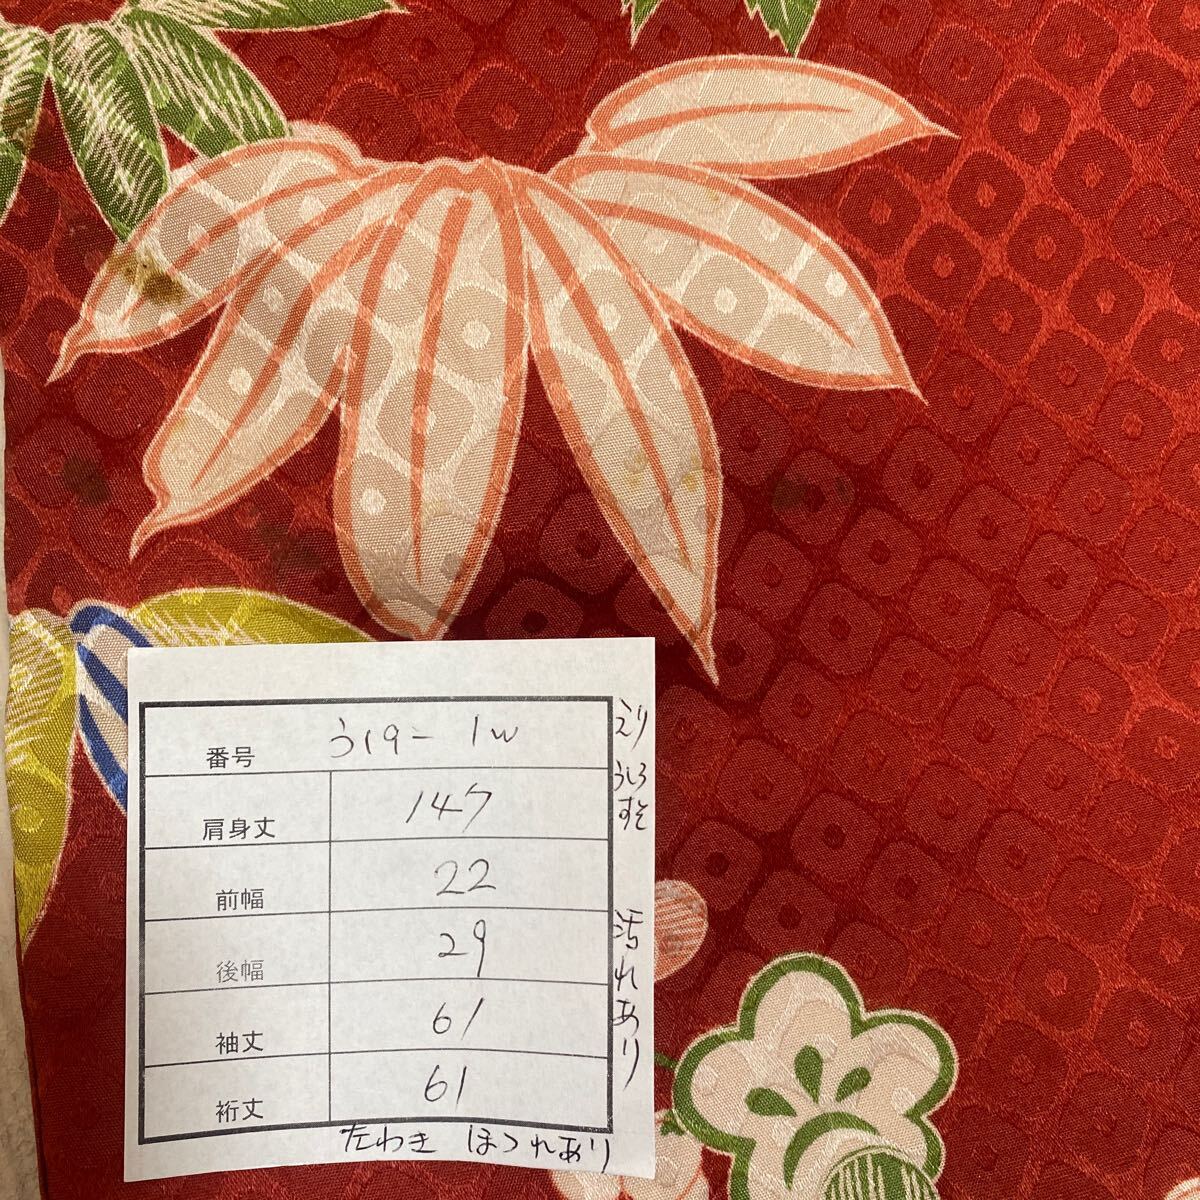 番号 う19-1w
肩身丈 147
前幅 22
後幅 29
袖丈 61
裄丈 61
えり
うしろ
すそ
汚れあり
左わき ほつれあり